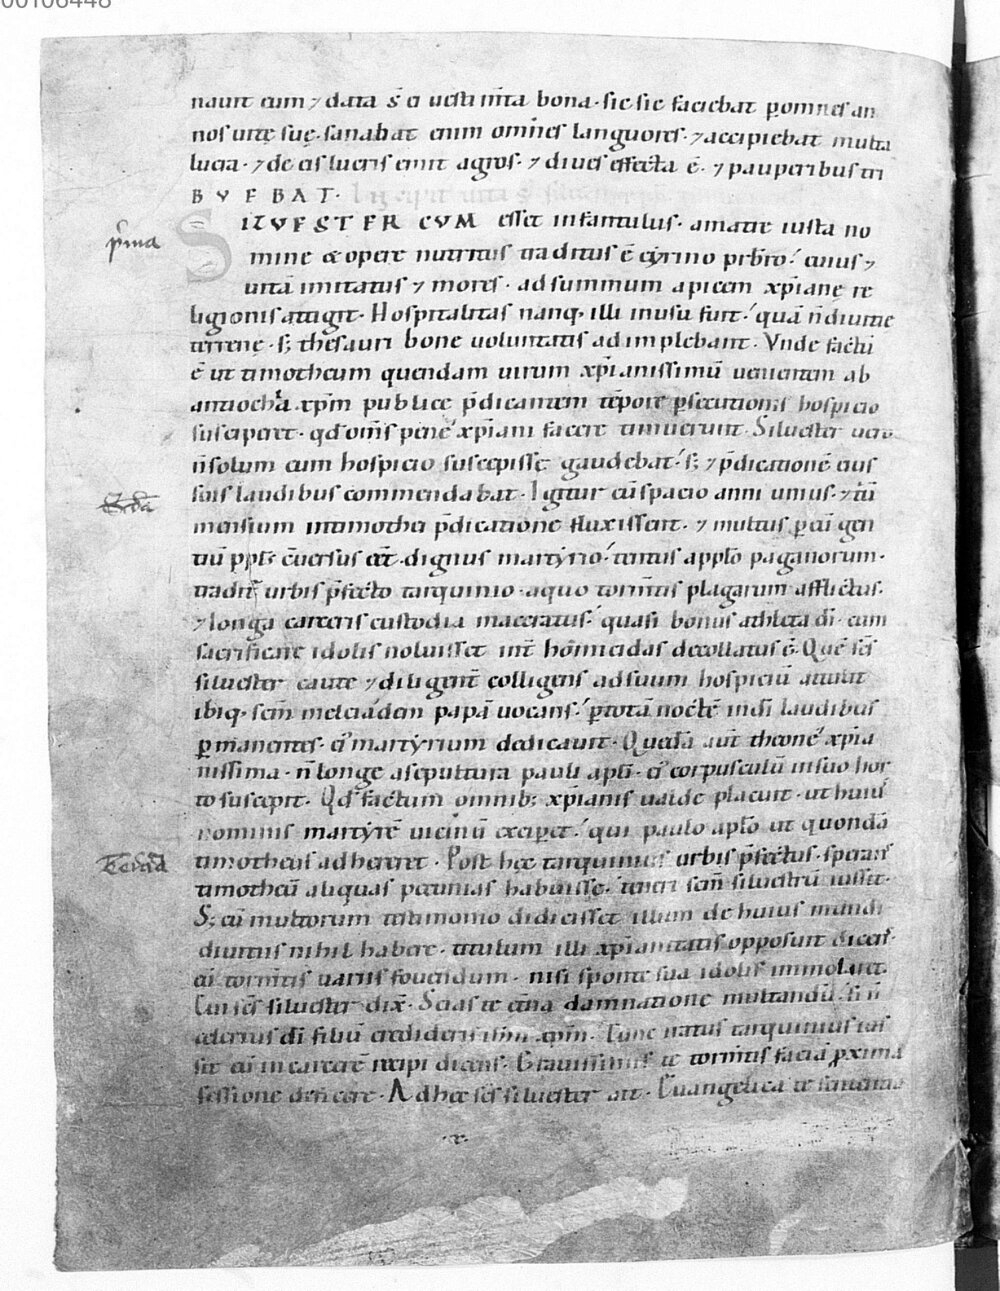 00106448
nauit eum ⁊ data s̄ ei uestim̄ta bona · sic sic faciebat p̱ omnes an
nos uitę suę · sanabat enim omn̄es languores · ⁊ accipiebat multa
lucra · ⁊ de eis lucris emit agros · ⁊ diues effecta ē · ⁊ pauperibus tri
BVEBAT · Incipit uita s̄
SILVESTER CVM esset infantulus · amator iusta no
p̄ma
mine & opere nutritus traditus ē cyrino prb̄ro · cuius ⁊
uitā imitatus ⁊ mores · ad summum apicem xp̄ianę re
ligionis attigit · Hospitalitas nanq; illi inusu fuit · quā n̄ diuitię
terrenę · s; thesauri bone uoluntatis adimplebant · Vnde factū
ē ut timotheum quendam uirum xp̄ianissimū uenientem ab
antiochia xp̄m publice p̄dicantem tēpore p̱secutionis hospicio
susciperet · qd̄ om̄s pene xp̄iani facere timuerunt · Siluester uero
n̄ solum eum hospicio suscepisse gaudebat · s; ⁊ p̄dicationē eius
suis laudibus commendabat · Igitur cū spacio anni unius · ⁊ triū
Scd̄a
mensium in timothei p̄dicatione fluxissent · ⁊ multus p̱ eū gen
tiū ppl̄s c̄uersus eēt · dignus martyrio · tentus a pplō paganorum ·
tradit᷑ urbis p̄fecto tarquinio · a quo torm̄tis plagarum afflictus ·
⁊ longa carceris custodia maceratus · quasi bonus athleta dī · cum
sacrificare idolis noluisset int̄ hōmicidas decollatus ē · Quē sc̄s
siluester caute ⁊ diligent̄ colligens ad suum hospiciū attulit
ibiq; sc̄m melciadem papā uocans · p̱ totā noctē in dī laudibus
p̱manentes · ei᷒ martyrium dedicauit · Quedā aut̄ theone xp̄ia
nissima · n̄ longe a sepultura pauli aplī · ei᷒ corpusculū in suo hor
to suscepit · Qd̄ factum omnib; xp̄ianis ualde placuit · ut huius
nominis martyrē uicinū exciperet · qui paulo aplō ut quondā
timotheus adhereret · Post hęc tarquinius urbis p̄fectus · sperans
Tercia
timotheū aliquas pecunias habuisse · teneri sc̄m siluestrū iussit ·
S; cū multorum testimonio didicisset illum de huius mundi
diuitiis nihil habere · titulum illi xp̄ianitatis opposuit dicens ·
eū torm̄tis uariis fouendum · nisi sponte sua idolis immolaret ·
Cui sc̄s siluester dix̄ · Scias te et̄na damnatione multandū · si n̄
celerius dī filiū credideris ih̄m xp̄m · Tunc iratus tarquinius ius
sit eū in carcere recipi dicens · Grauissimis te torm̄tis faciā p̱xima
sessione deficere · Ad hęc sc̄s siluester ait · Euangelica te sententia